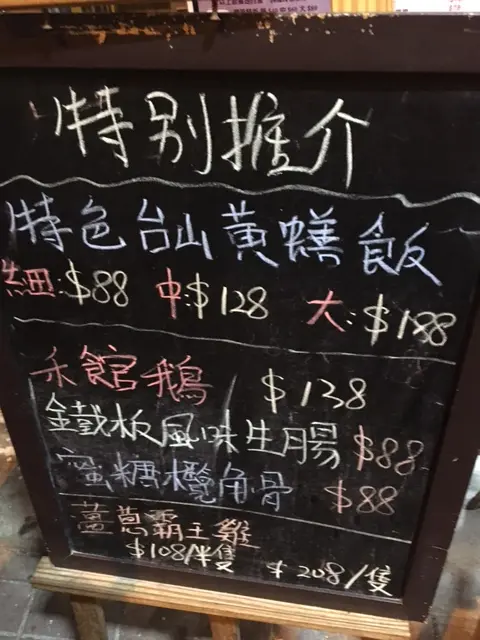 特别推介
特色台山黄鱔飯
細:$88 中:$128 大:$188
禾館鵝 $138
鐵板風味生腸 $88
蜜糖欖角骨 $88
薑蔥霸王雞
$108/半隻 $208/隻